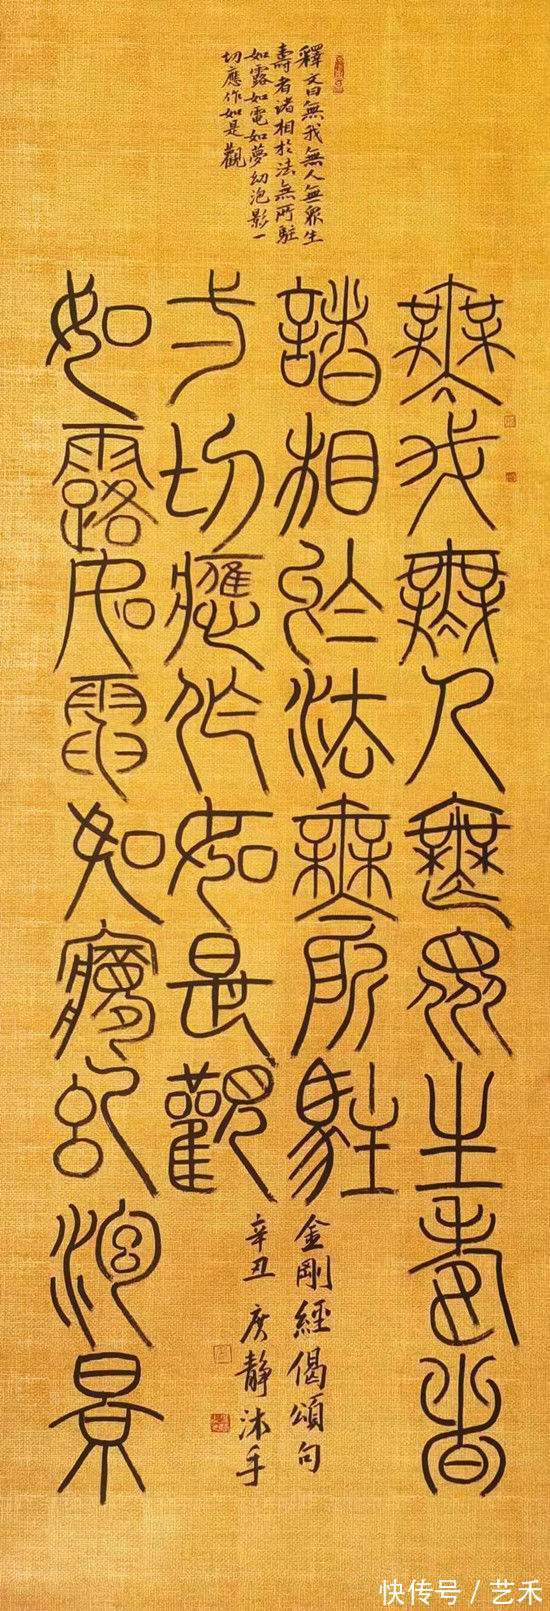 釋文曰無我無人無眾生
壽者諸相於法無所駐
如露如電如夢幻泡影一
切應作如是觀
無我無人無眾生壽者
諸相於法無所駐
一切應作如是觀
如露如電如夢幻泡景
金剛經偈頌句
辛丑 靜沐手
快传号/艺禾